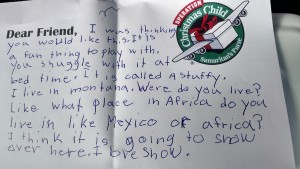 Dear Friend, I was thinking
you would like this. It's
a fun thing to play with.
You snuggle with it at
bed time. It is called A stuffy.
I live in montana. Were do you live?
Like what place in Africa do you
live in like Mexico or africa?
I think it is going to snow
over here. I love snow.
OPERATION
Christmas Child
Samaritan's Purse